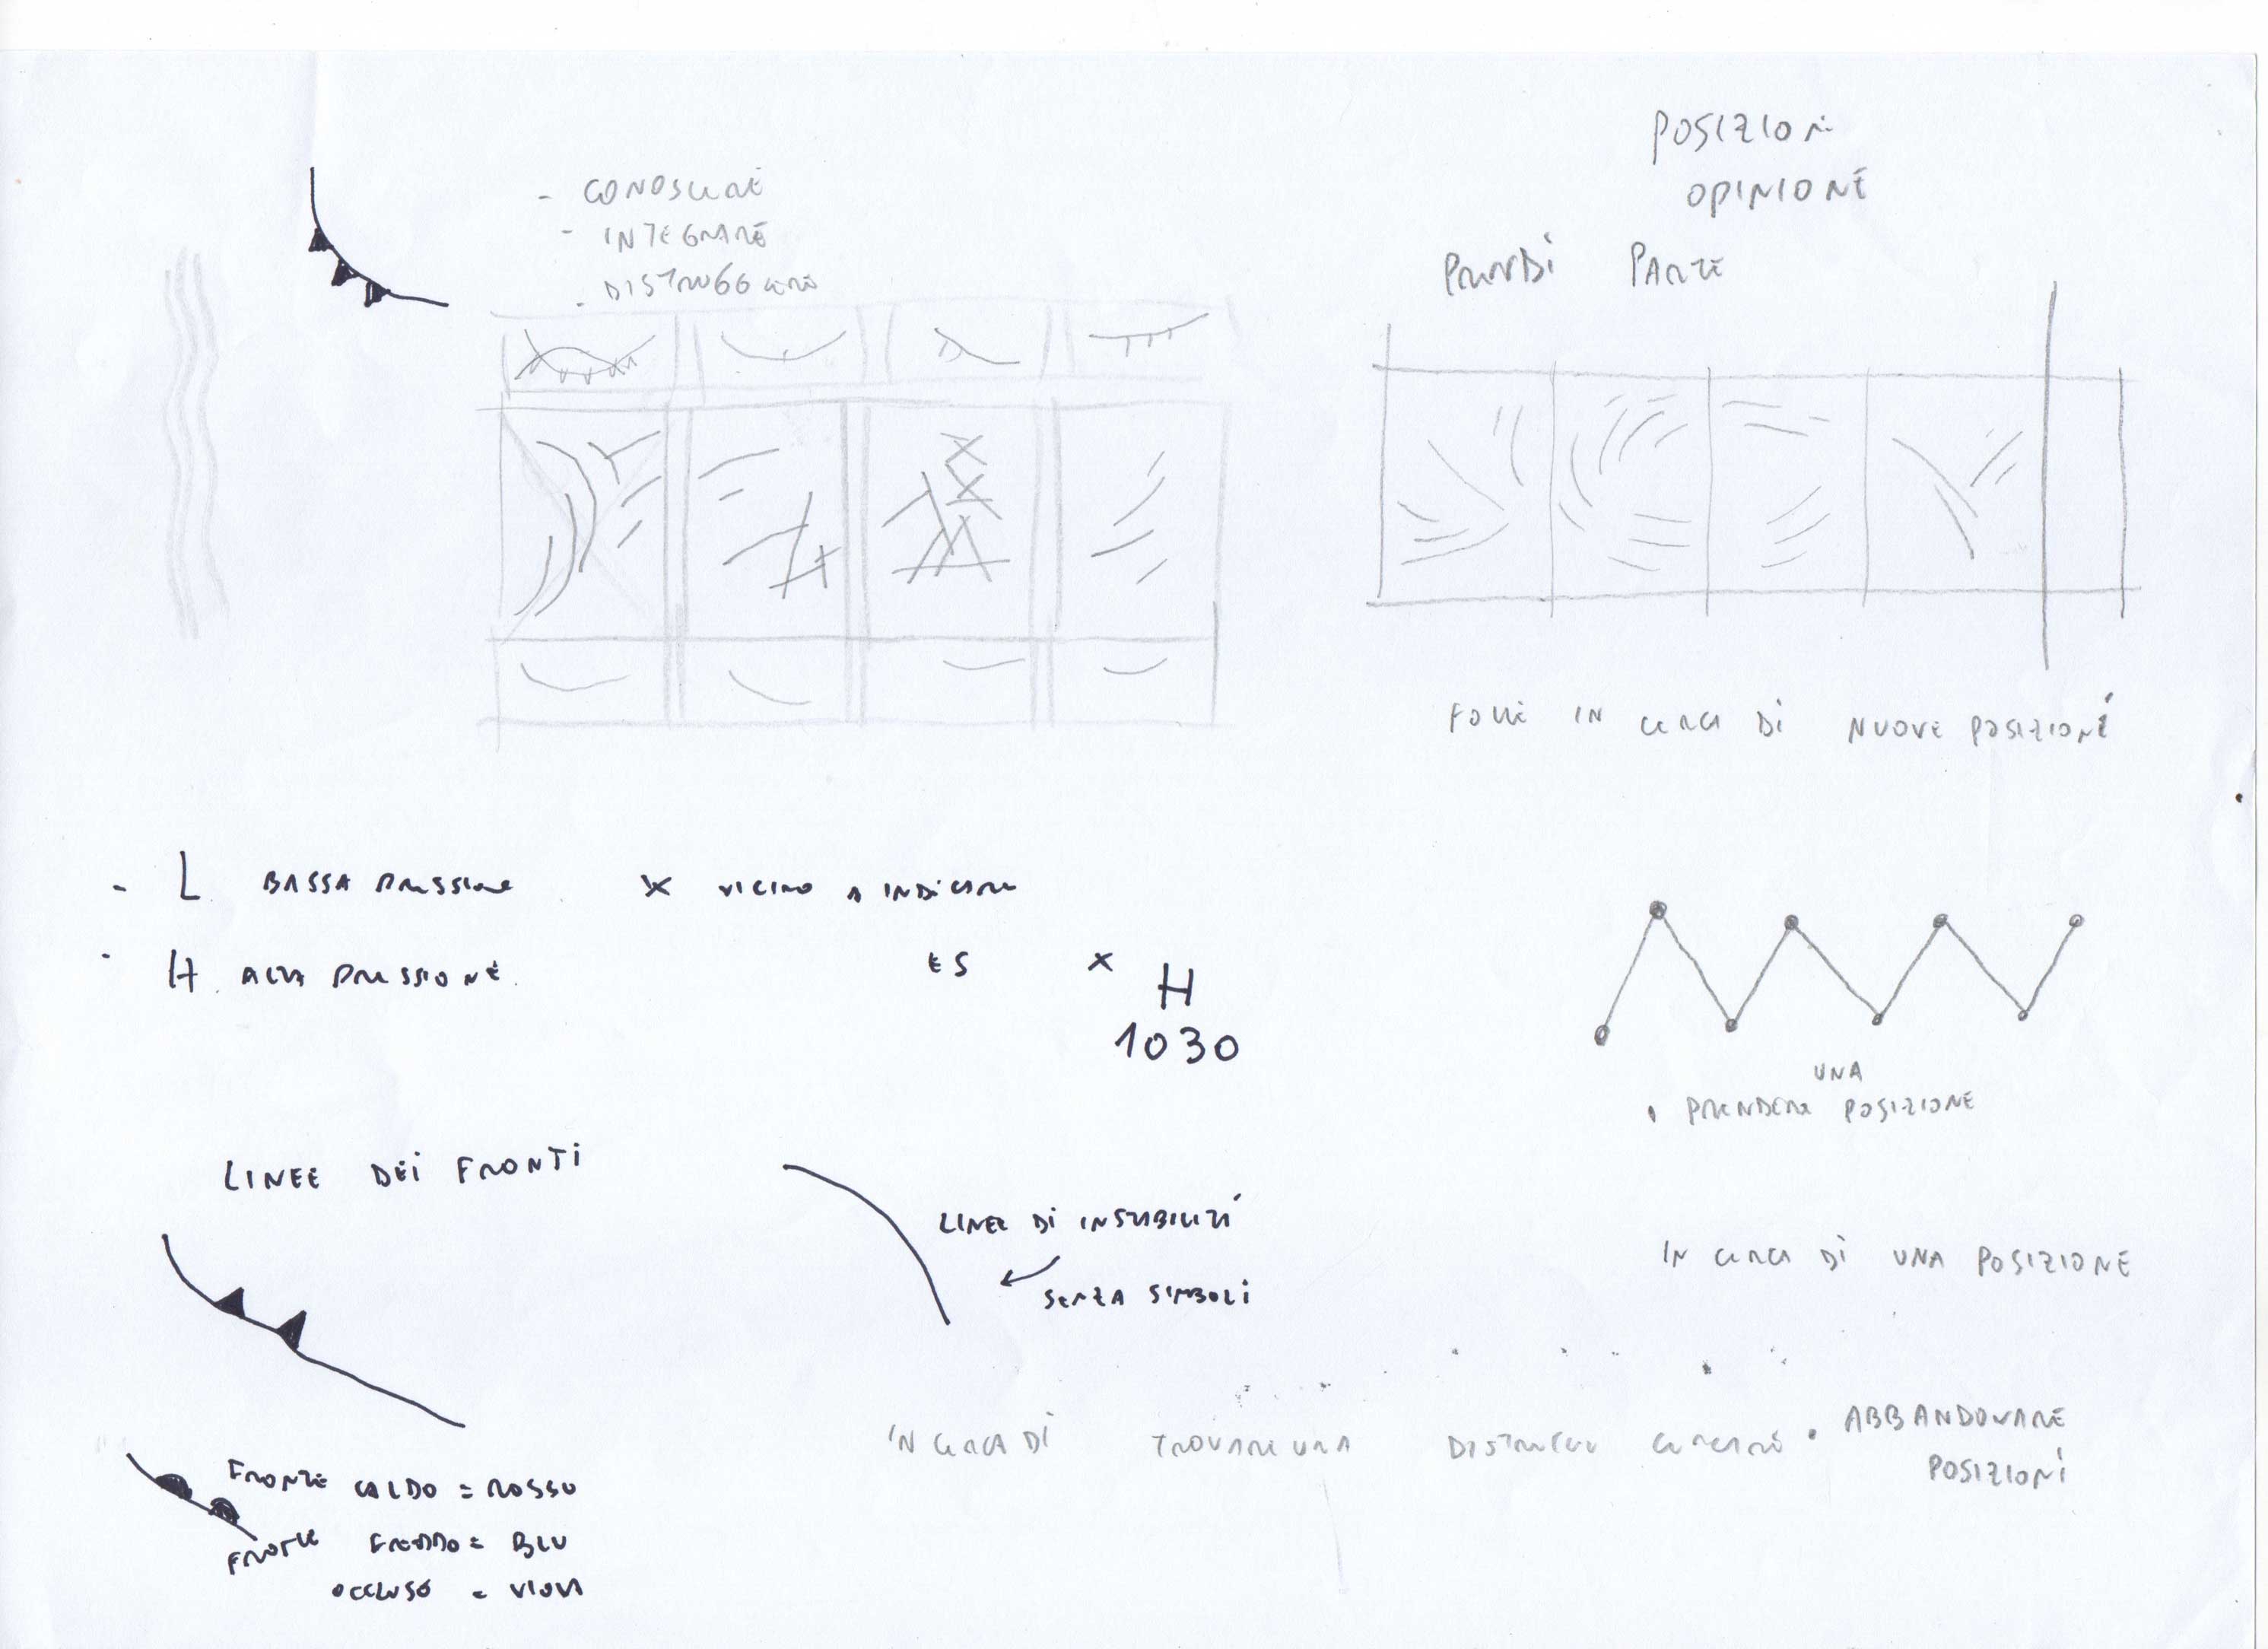 - CONOSCERE
- INTEGRARE
- DISTRUGGERE
POSIZIONI
OPINIONE
PRENDI PARTE
FOLLE IN CERCA DI NUOVE POSIZIONI
- L BASSA PRESSIONE X VICINO A INDICARE
- H ALTA PRESSIONE.
ES X H
1030
UNA
PRENDERE POSIZIONE
LINEE DEI FRONTI
LINEE DI INSTABILITÁ
SENZA SIMBOLI
IN CERCA DI UNA POSIZIONE
IN CERCA DI TROVARE UNA
• ABBANDONARE
POSIZIONI
FRONTE CALDO = ROSSO
FRONTE FREDDO = BLU
OCCLUSO = VIOLA